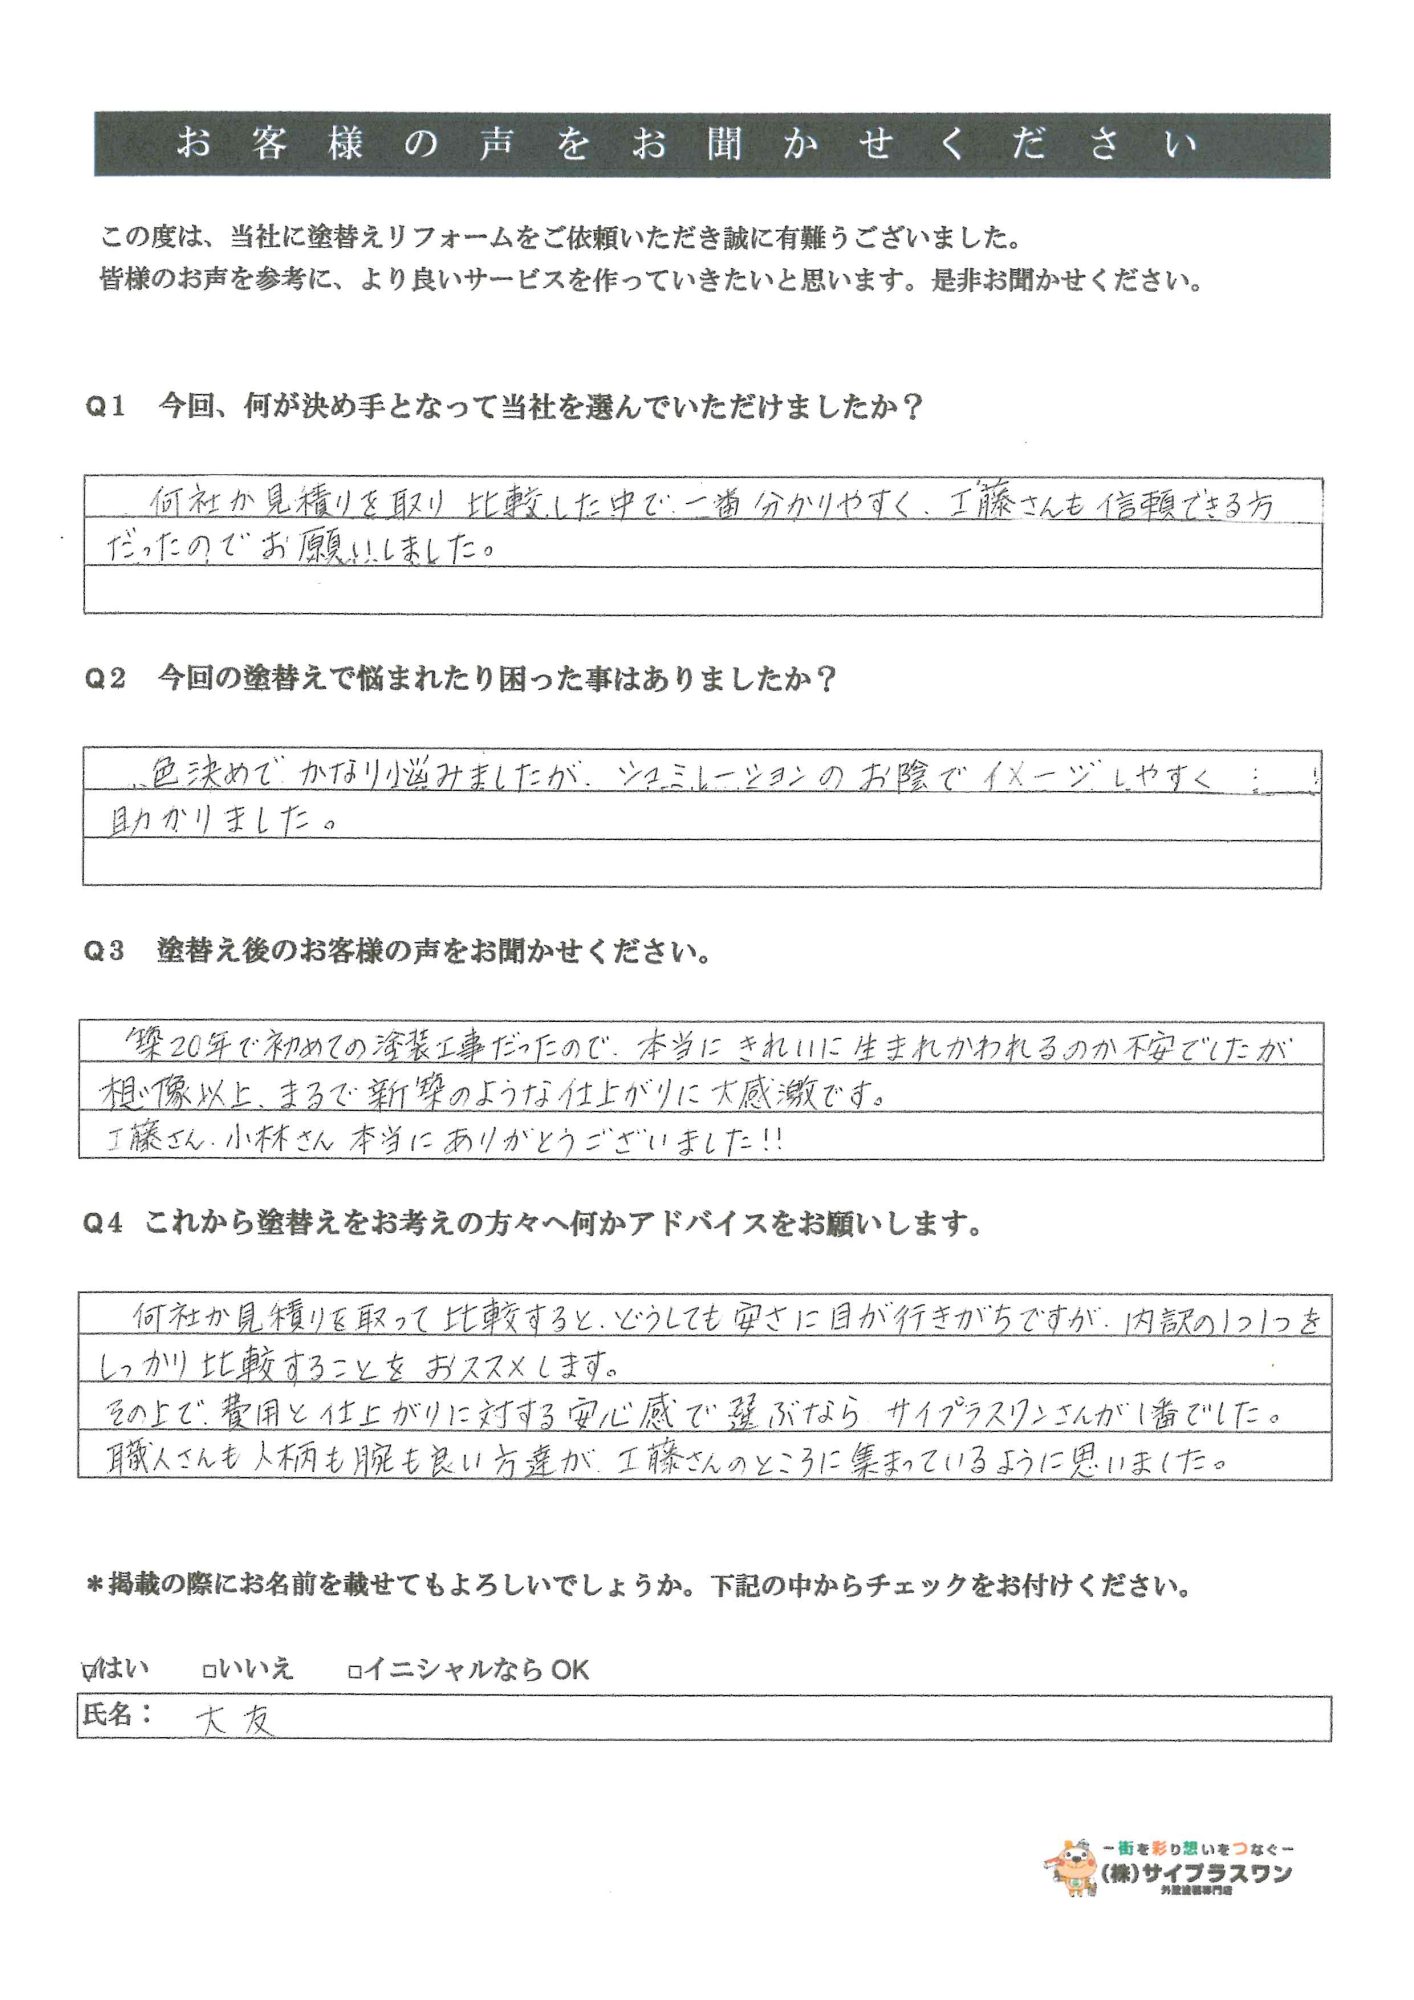 お客様の声をお聞かせください
この度は、当社に塗替えリフォームをご依頼いただき誠に有難うございました。
皆様のお声を参考に、より良いサービスを作っていきたいと思います。是非お聞かせください。
Q1 今回、何が決め手となって当社を選んでいただけましたか？
何社か見積りを取り比較した中で一番分かりやすく、工藤さんも信頼できる方
だったのでお願いしました。
Q2 今回の塗替えで悩まれたり困った事はありましたか？
色決めでかなり悩みましたが、シュミレーションのお陰でイメージしやすく
助かりました。
Q3 塗替え後のお客様の声をお聞かせください。
築20年で初めての塗装工事だったので、本当にきれいに生まれかわれるのか不安でしたが
想像以上、まるで新築のような仕上がりに大感激です。
工藤さん、小林さん本当にありがとうございました!!
Q4 これから塗替えをお考えの方々へ何かアドバイスをお願いします。
何社か見積りを取って比較すると、どうしても安さに目が行きがちですが、内訳の1つ1つを
しっかり比較することをおススメします。
その上で、費用と仕上がりに対する安心感で選ぶなら、サイプラスワンさんが1番でした。
職人さんも人柄も腕も良い方達が、工藤さんのところに集まっているように思いました。
*掲載の際にお名前を載せてもよろしいでしょうか。下記の中からチェックをお付けください。
☑はい □いいえ □イニシャルならOK
氏名： 大友
−街を彩り想いをつなぐ−
(株)サイプラスワン
外壁塗替専門店